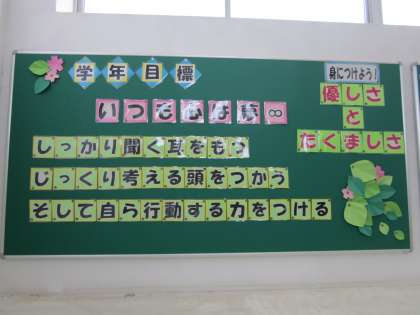 学年目標
いつも心は夢∞
しっかり聞く耳をもつ
じっくり考える頭をつかう
そして自ら行動する力をつける
身につけよう!
優しさ
と
たくましさ